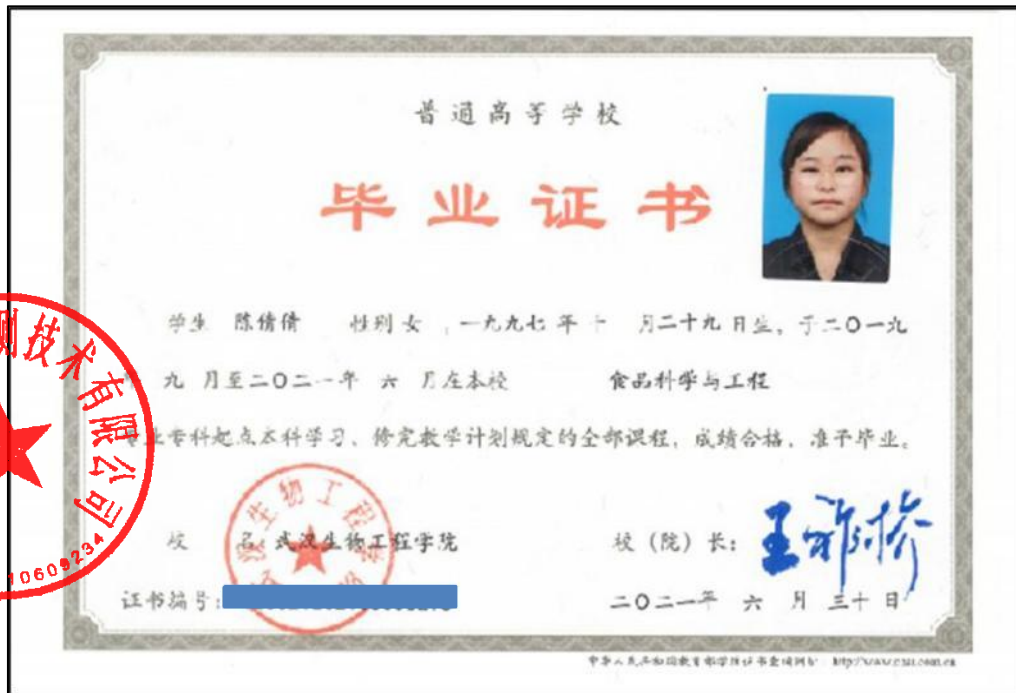 普通高等学校
毕业证书
学生 陈倩倩 性别 女 ,一九九七 年 十 月二十九 日生, 于二〇一九
九 月至二〇二一年 六 月在本校 食品科学与工程
专科起点本科学习, 修完教学计划规定的全部课程, 成绩合格, 准予毕业。
校 名: 武汉生物工程学院
校(院)长:
证书编号:
二〇二一年 六 月 三十 日
中华人民共和国教育部学历证书查询网址: http://www.chsi.com.cn
测技术有限公司
10609234
生物工程学